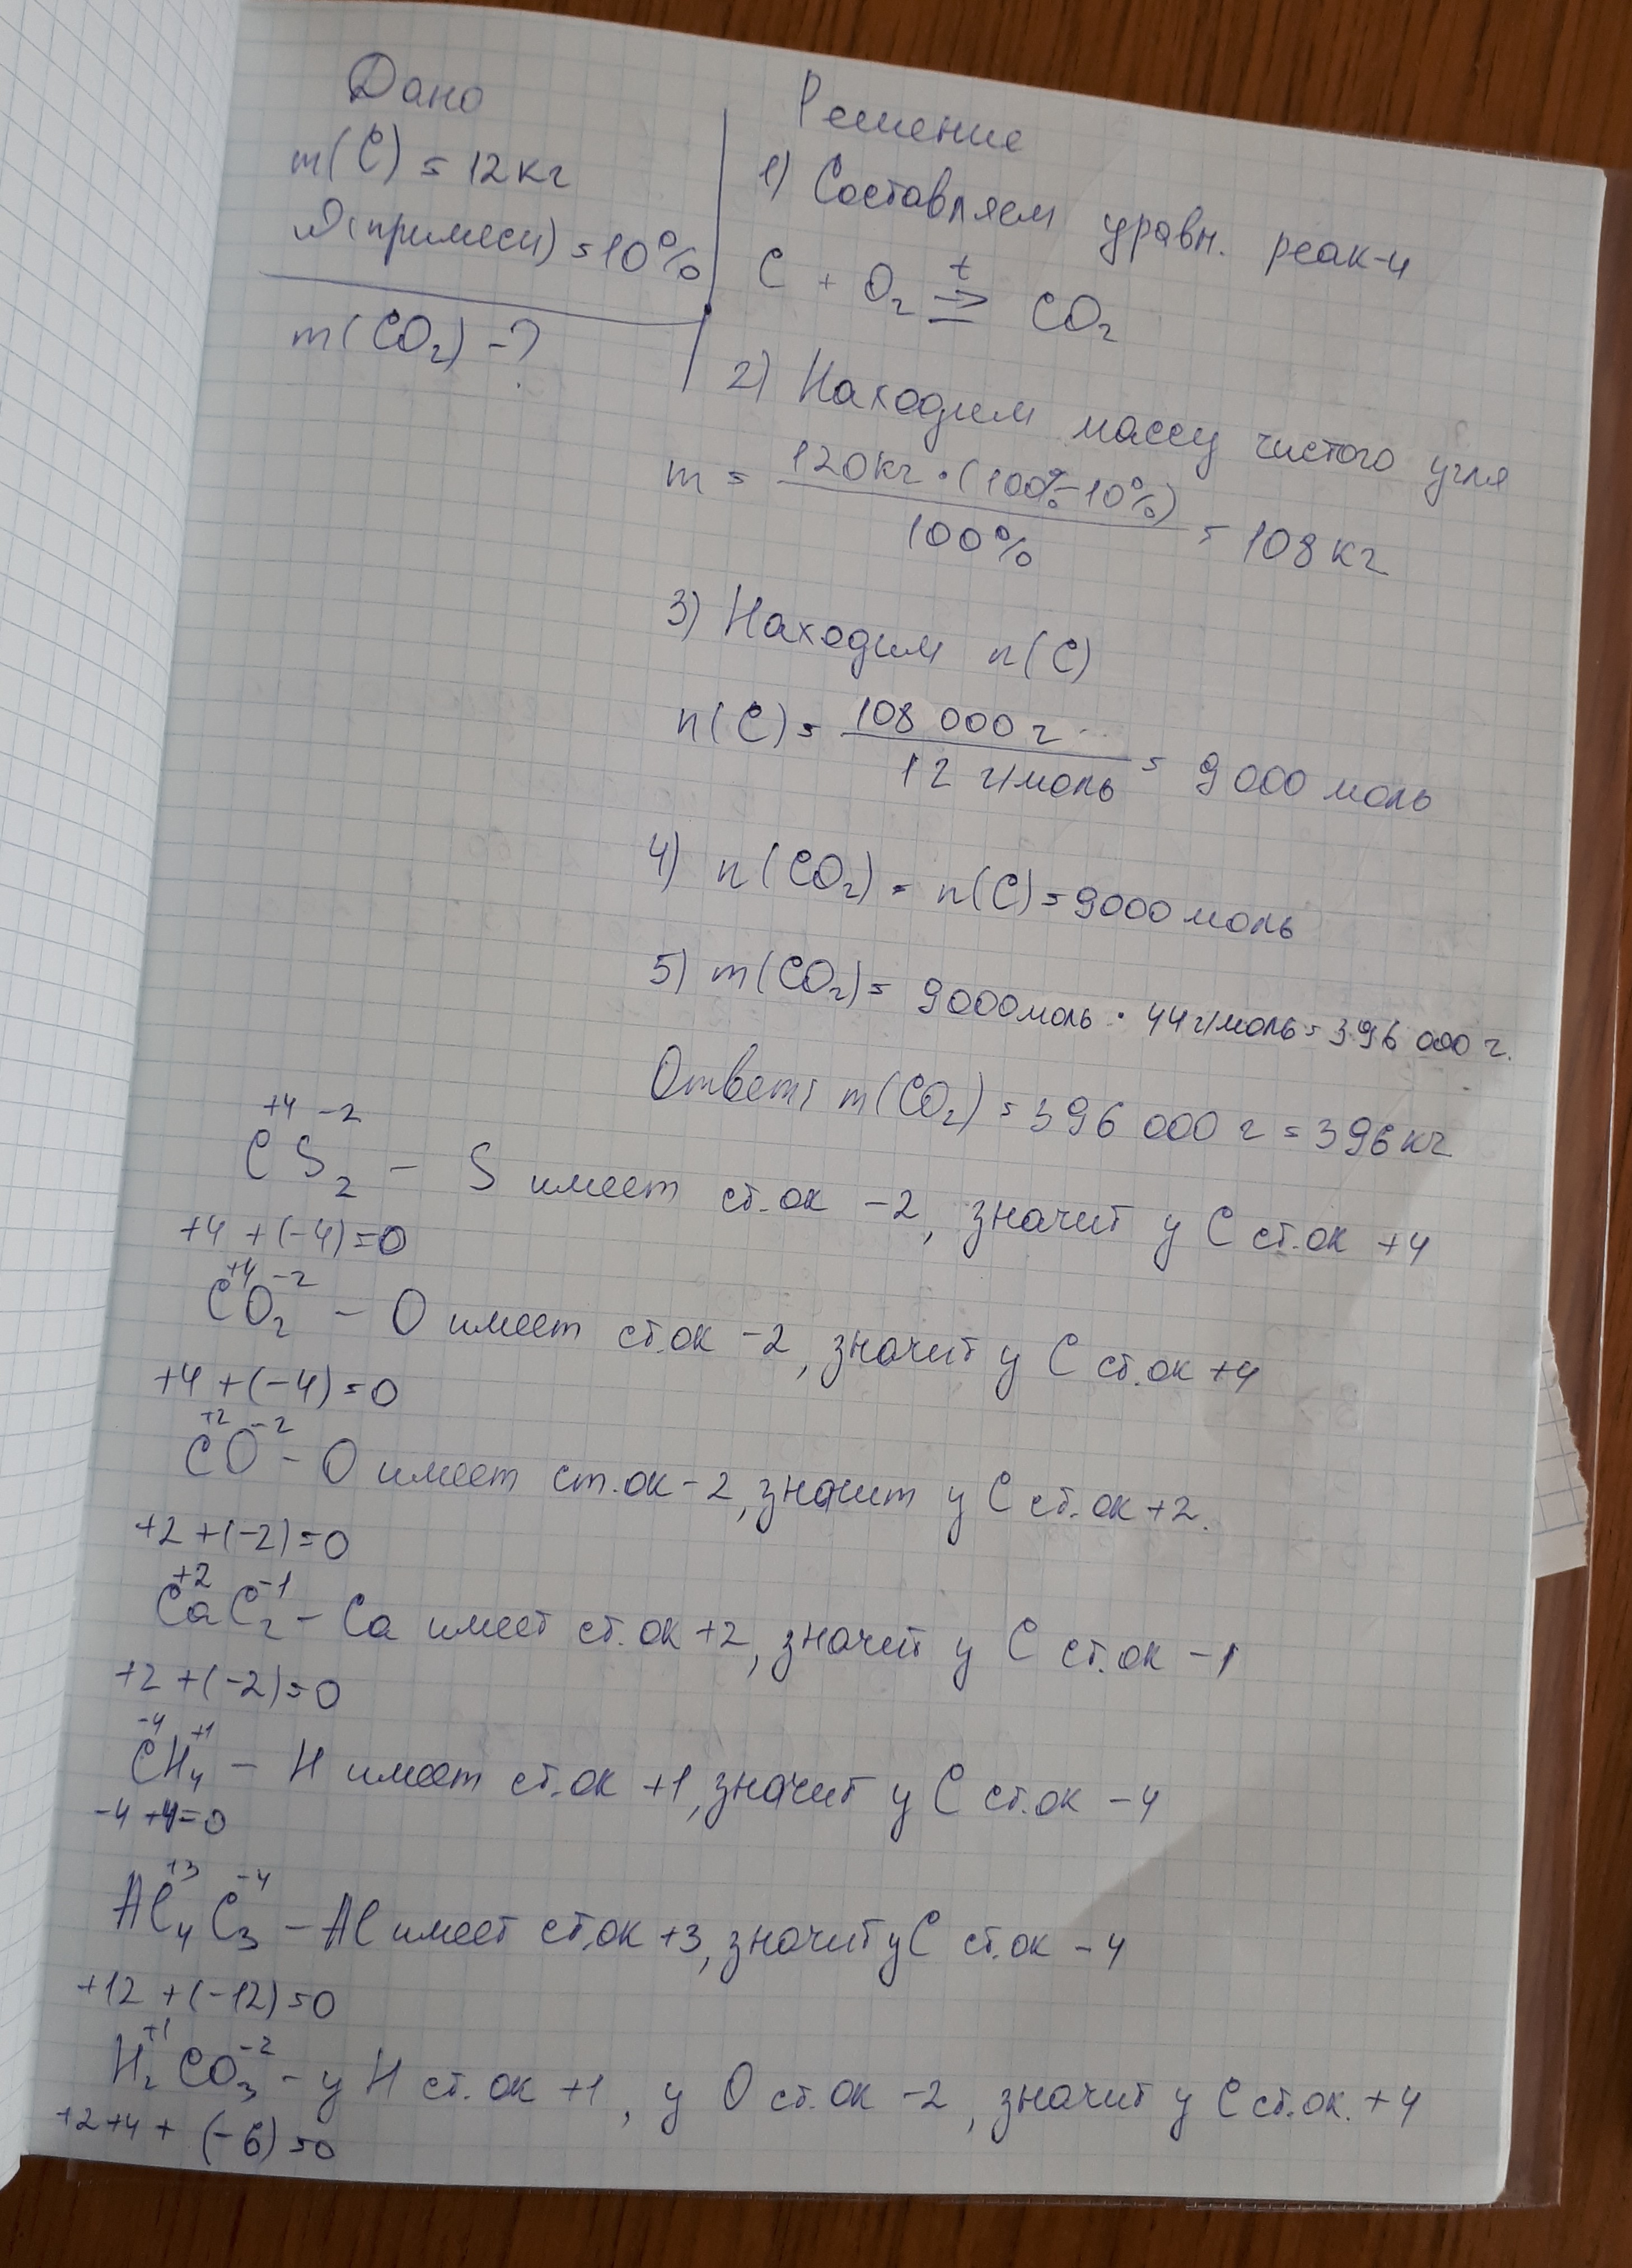 Дано
m(C) = 12кг
ω(примеси) = 10%
m(CO₂) - ?
Решение
1) Составляем уравн. реак-и
C + O₂ t⇒ CO₂
2) Находим массу чистого угля
m = 120кг · (100% - 10%) / 100% = 108 кг
3) Находим n(C)
n(C) = 108 000 г / 12 г/моль = 9 000 моль
4) n(CO₂) = n(C) = 9000 моль
5) m(CO₂) = 9000моль · 44 г/моль = 396 000 г.
Ответ: m(CO₂) = 396 000 г = 396 кг
+4 -2
CS₂ - S имеет ст.ок -2, значит у C ст.ок +4
+4 + (-4) = 0
+4 -2
CO₂ - O имеет ст.ок -2, значит у C ст.ок +4
+4 + (-4) = 0
+2 -2
CO - O имеет ст.ок -2, значит у C ст.ок +2.
+2 + (-2) = 0
+2 -1
CaC₂ - Ca имеет ст.ок +2, значит у C ст.ок -1
+2 + (-2) = 0
-4 +1
CH₄ - H имеет ст.ок +1, значит у C ст.ок -4
-4 +4 = 0
+3 -4
Al₄C₃ - Al имеет ст.ок +3, значит у C ст.ок -4
+12 + (-12) = 0
+1 -2
H₂CO₃ - у H ст.ок +1, у O ст.ок -2, значит у C ст.ок. +4
+2 +4 + (-6) = 0